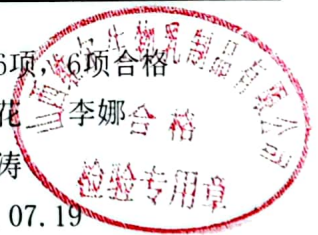 6项，6项合格
花 李娜
涛
07.19
生物乳制品有限公司
合格
检验专用章